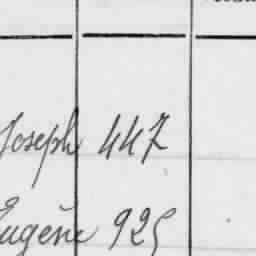 Joseph 447
Eugène 925